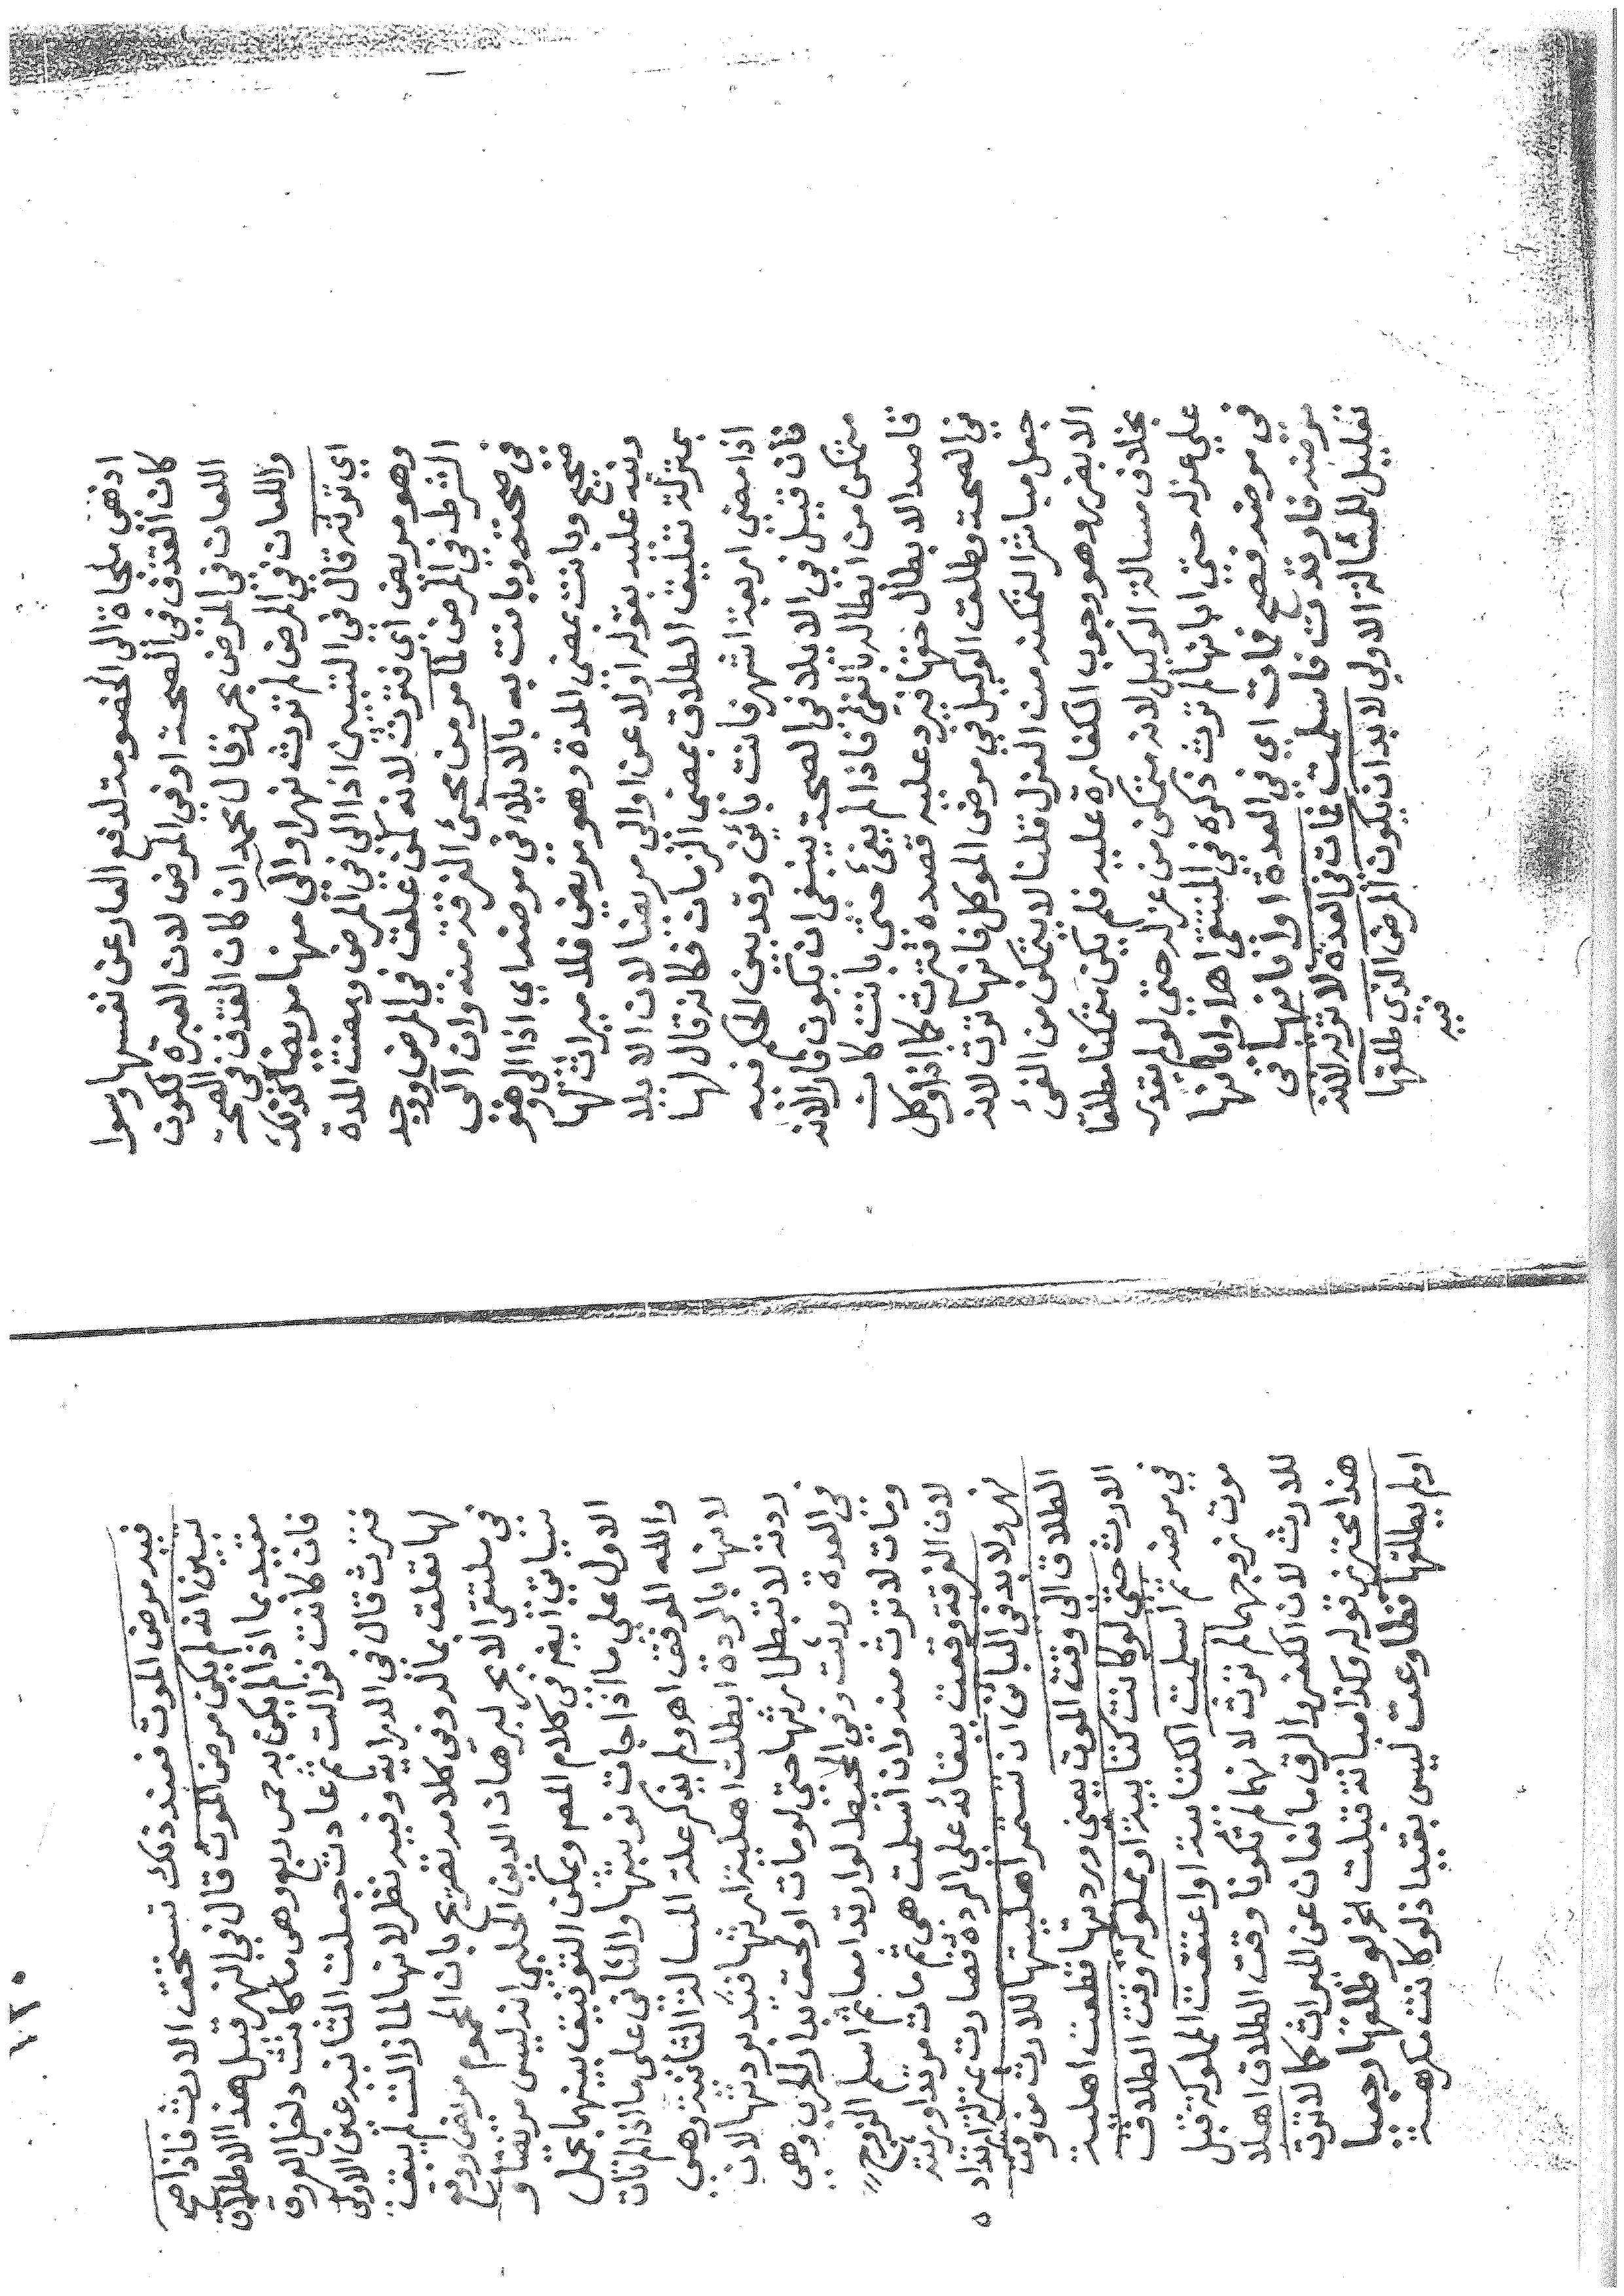 اذ هى ملجاة الى الخصومة لدفع العار عن نفسها وسوا
كان القذف فى الصحة او فى المرض لان العبرة لكون
اللعان فى المرض بحر وقال محمد ان كان القذف فى الصحة
واللعان فى المرض لم ترث نهر او الى منها مريضا كذلك
اي ترثه قال فى التبيين اذا الى فى المرض ومضت المدة
وهو مريض اي فترث لانه كمن علق فى المرض ووجد
الشرط فى المرض لما مر من مجئ الفرقة منه وان الى
فى صحته وبانت به بالايلاء فى مرضه اي اذا الى وهو
صحيح وبانت بمضى المدة وهو مريض فلا ميراث لها
ونبه عليه بقوله اولا عن اوالى مريضا لان الايلا
بمنزلة تعليق الطلاق بمضى الزمان فكانه قال لها
اذا مضى اربعة اشهر فانت بائن وقد بين الحكم فيه
فان قيل فى الايلا فى الصحة ينبغى ان يكون فارا لانه
متمكن من ابطاله بالفئ فاذا لم يفئ حتى بانت كان
قاصدا لابطال حقها فيرد عليه قصده فترث كما اذا وكل
فى الصحة وطلق الوكيل فى مرض الموكل فانها ترث لانه
جعل مباشرا لتمكنه من العزل قلنا لا يتمكن من الفئ
الا بضرر وهو وجوب الكفارة عليه فلم يكن متمكنا مطلقا
بخلاف مسالة الوكيل لانه متمكن من عزله حتى لو لم يقدر
على عزله حتى ابانها لم ترث ذكره فى المنتقى اه او ابانها
فى مرضه فصح فمات اي فى العدة او ابانها فى
مرضه فارتدت فاسلمت فمات فى العدة لا ترثه لانه
تعليل للمسالة الاولى لابد ان يكون المرض الذى طلقها
فيه
١٢٥
فيه مرض الموت فعند ذلك تستحق الارث فاذا صح
تبين انه لم يكن مرض الموت قال فى النهر قيل هذا الاطلاق
مقيد بما اذا لم يكن به حمى ربع وهى ما كانت دخل العروق
فان كانت فزالت ثم عادت جعلت الثانية عين الاولى
فترث قال فى الدراية وفيه نظر لانها لما زالت لم يبق
لها تعلق بما لو وفى كلامه تصريح بان المحموم مريض ووقع
فى ملتقى الابحر لبرهان الدين الحلبى انه ليس مريضا و
سياتى ايضا فى كلام المص ويمكن التوفيق بينهما بحمل
الاول على ما اذا جات نوبتها والثانى على ما اذا لم تات
والله الموفق اه ولم يذكر علة المسالة الثانية وهى
لانها بالردة ابطلت اهلية ارثها قيد بردتها لان
ردته لا تبطل ارثها حتى لو مات او لحق بدار الحرب وهى
فى العدة ورثت وفى المحيط لو ارتدا معا ثم اسلم الزوج
ومات لا ترث منه وان اسلمت هى ثم مات مرتدا ورثته
لان الفرقة وقعت ببقائه على الردة فصارت بمنزلة ارتداده
نهر ولابد فى البائن ان تستمر اهليتها للارث من وقت
الطلاق الى وقت الموت يعنى وردتها قطعت اهلية
الارث حتى لو كانت كتابية او مملوكة وقت الطلاق
فى مرضه ثم اسلمت الكتابية او اعتقت المملوكة قبل
موت زوجهما لم ترث لانهما لم تكونا وقت الطلاق اهلا
للارث لان الكفر والرق مانعان عن الميراث كما لا ترث
هذا محترز قوله وكذا مبانته قبلت الخ لو طلقها رجعيا
اولم يطلقها فطاوعت ليس بقيد اذ لو كانت مكرهة